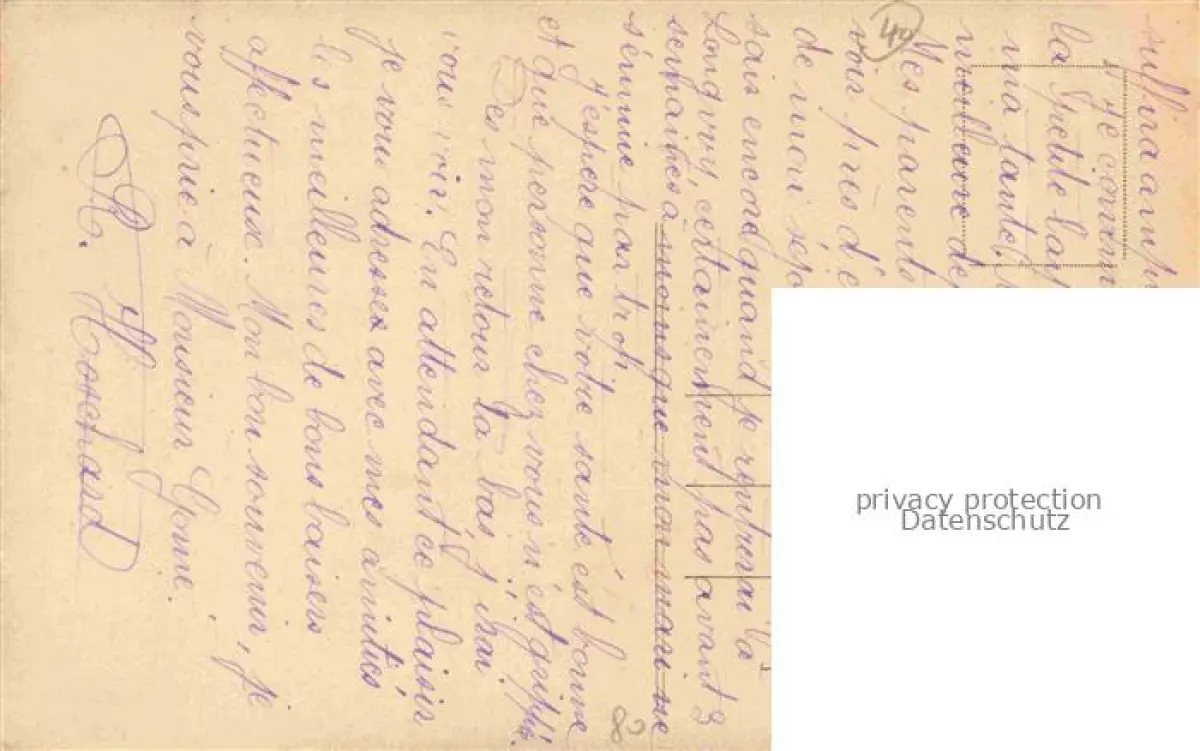 suffira
Je
la petite
ma tante,
meilleure de
Mes parents
voir près d'
de mon
sais encore quand je rentrerai à
Longwy, certainement pas avant 3
semaines à moins que mon mari ne
s'ennuie par trop.
J'espère que votre santé est bonne
et que personne chez vous n'est grippé.
Dès mon retour là bas, j'irai
vous voir. En attendant ce plaisir
je vous adresse avec mes amitiés
les meilleures de bons baisers
affectueux. Mon bon souvenir, je
vous prie à Monsieur
49
80
privacy protection
Datenschutz